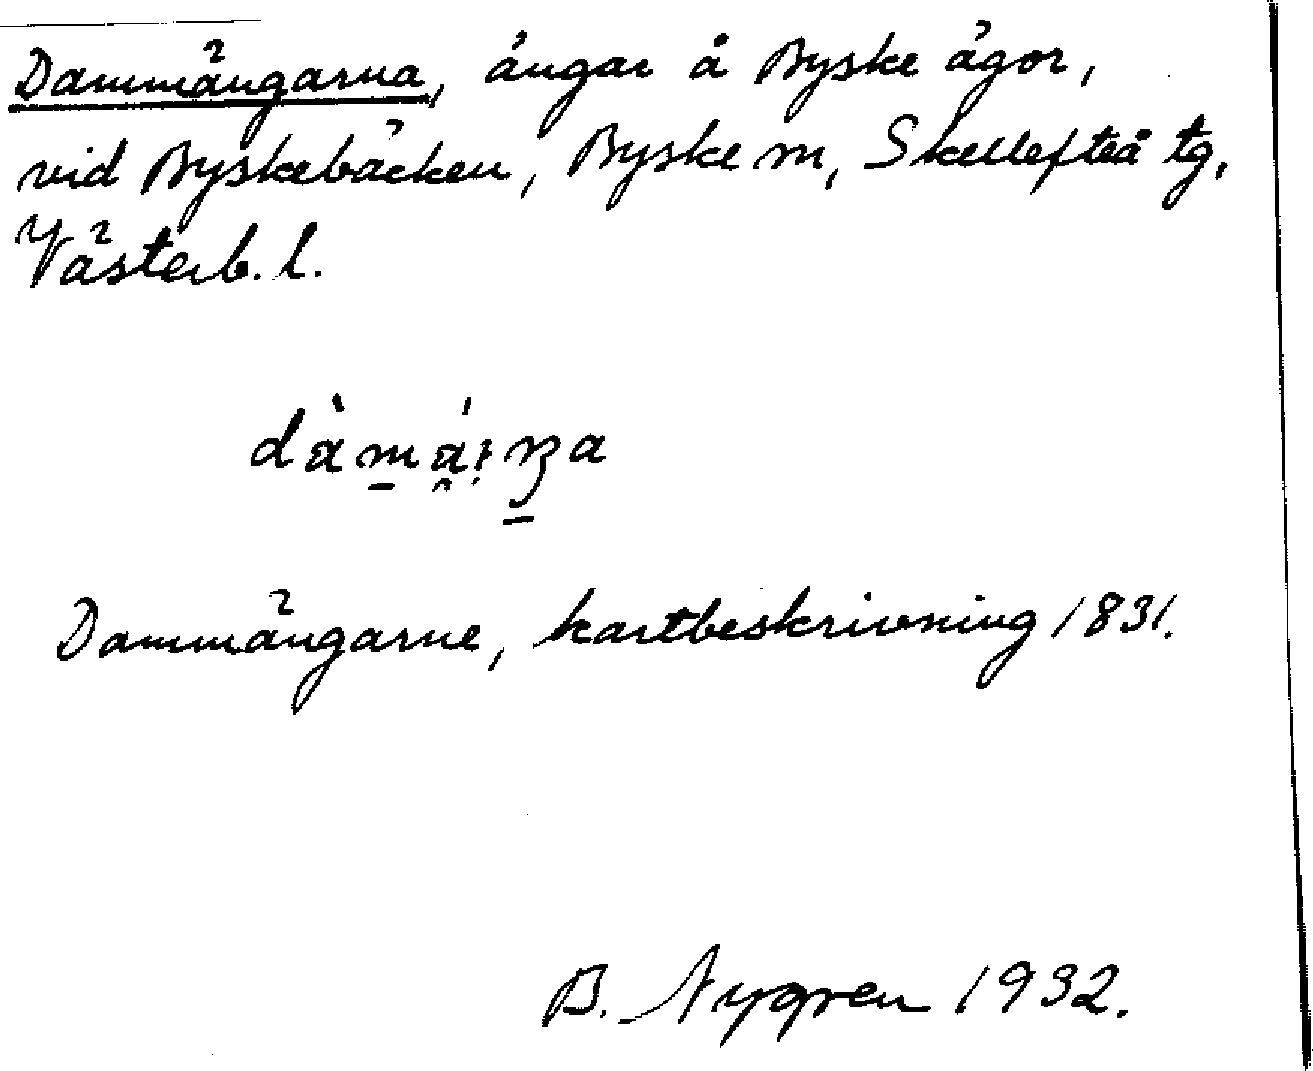 Dammängarna, ängar å Byske ägor,
vid Byskebäcken, Byske sn, Skellefteå tg,
Västerb. l.
Dammängarne, kartbeskrivning 1831.
B. Nygren 1932.